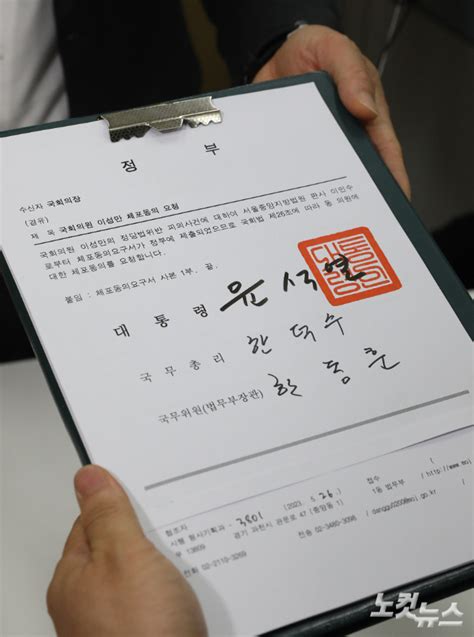 정 부
수신자 국회의장
(경유)
제 목 국회의원 이성만 체포동의 요청
국회의원 이성만의 정당법위반 피의사건에 대하여 서울중앙지방법원 판사 이민수
로부터 체포동의요구서가 정부에 제출되었으므로 국회법 제26조에 따라 동 의원에
대한 체포동의를 요청합니다.
붙임 : 체포동의요구서 사본 1부. 끝.
대 통 령 윤석열
국 무 총 리 한덕수
국무위원(법무부장관) 한동훈
협조자
시행 형사기획과 - 3801 (2023. 5. 26.) 접수 (
우 13809 경기 과천시 관문로 47 (중앙동 1) 1동 법무부 / http://www.moj
02-2110-3269 전송 02-3480-3098 / danggu0200@moj.go.kr /
노컷뉴스